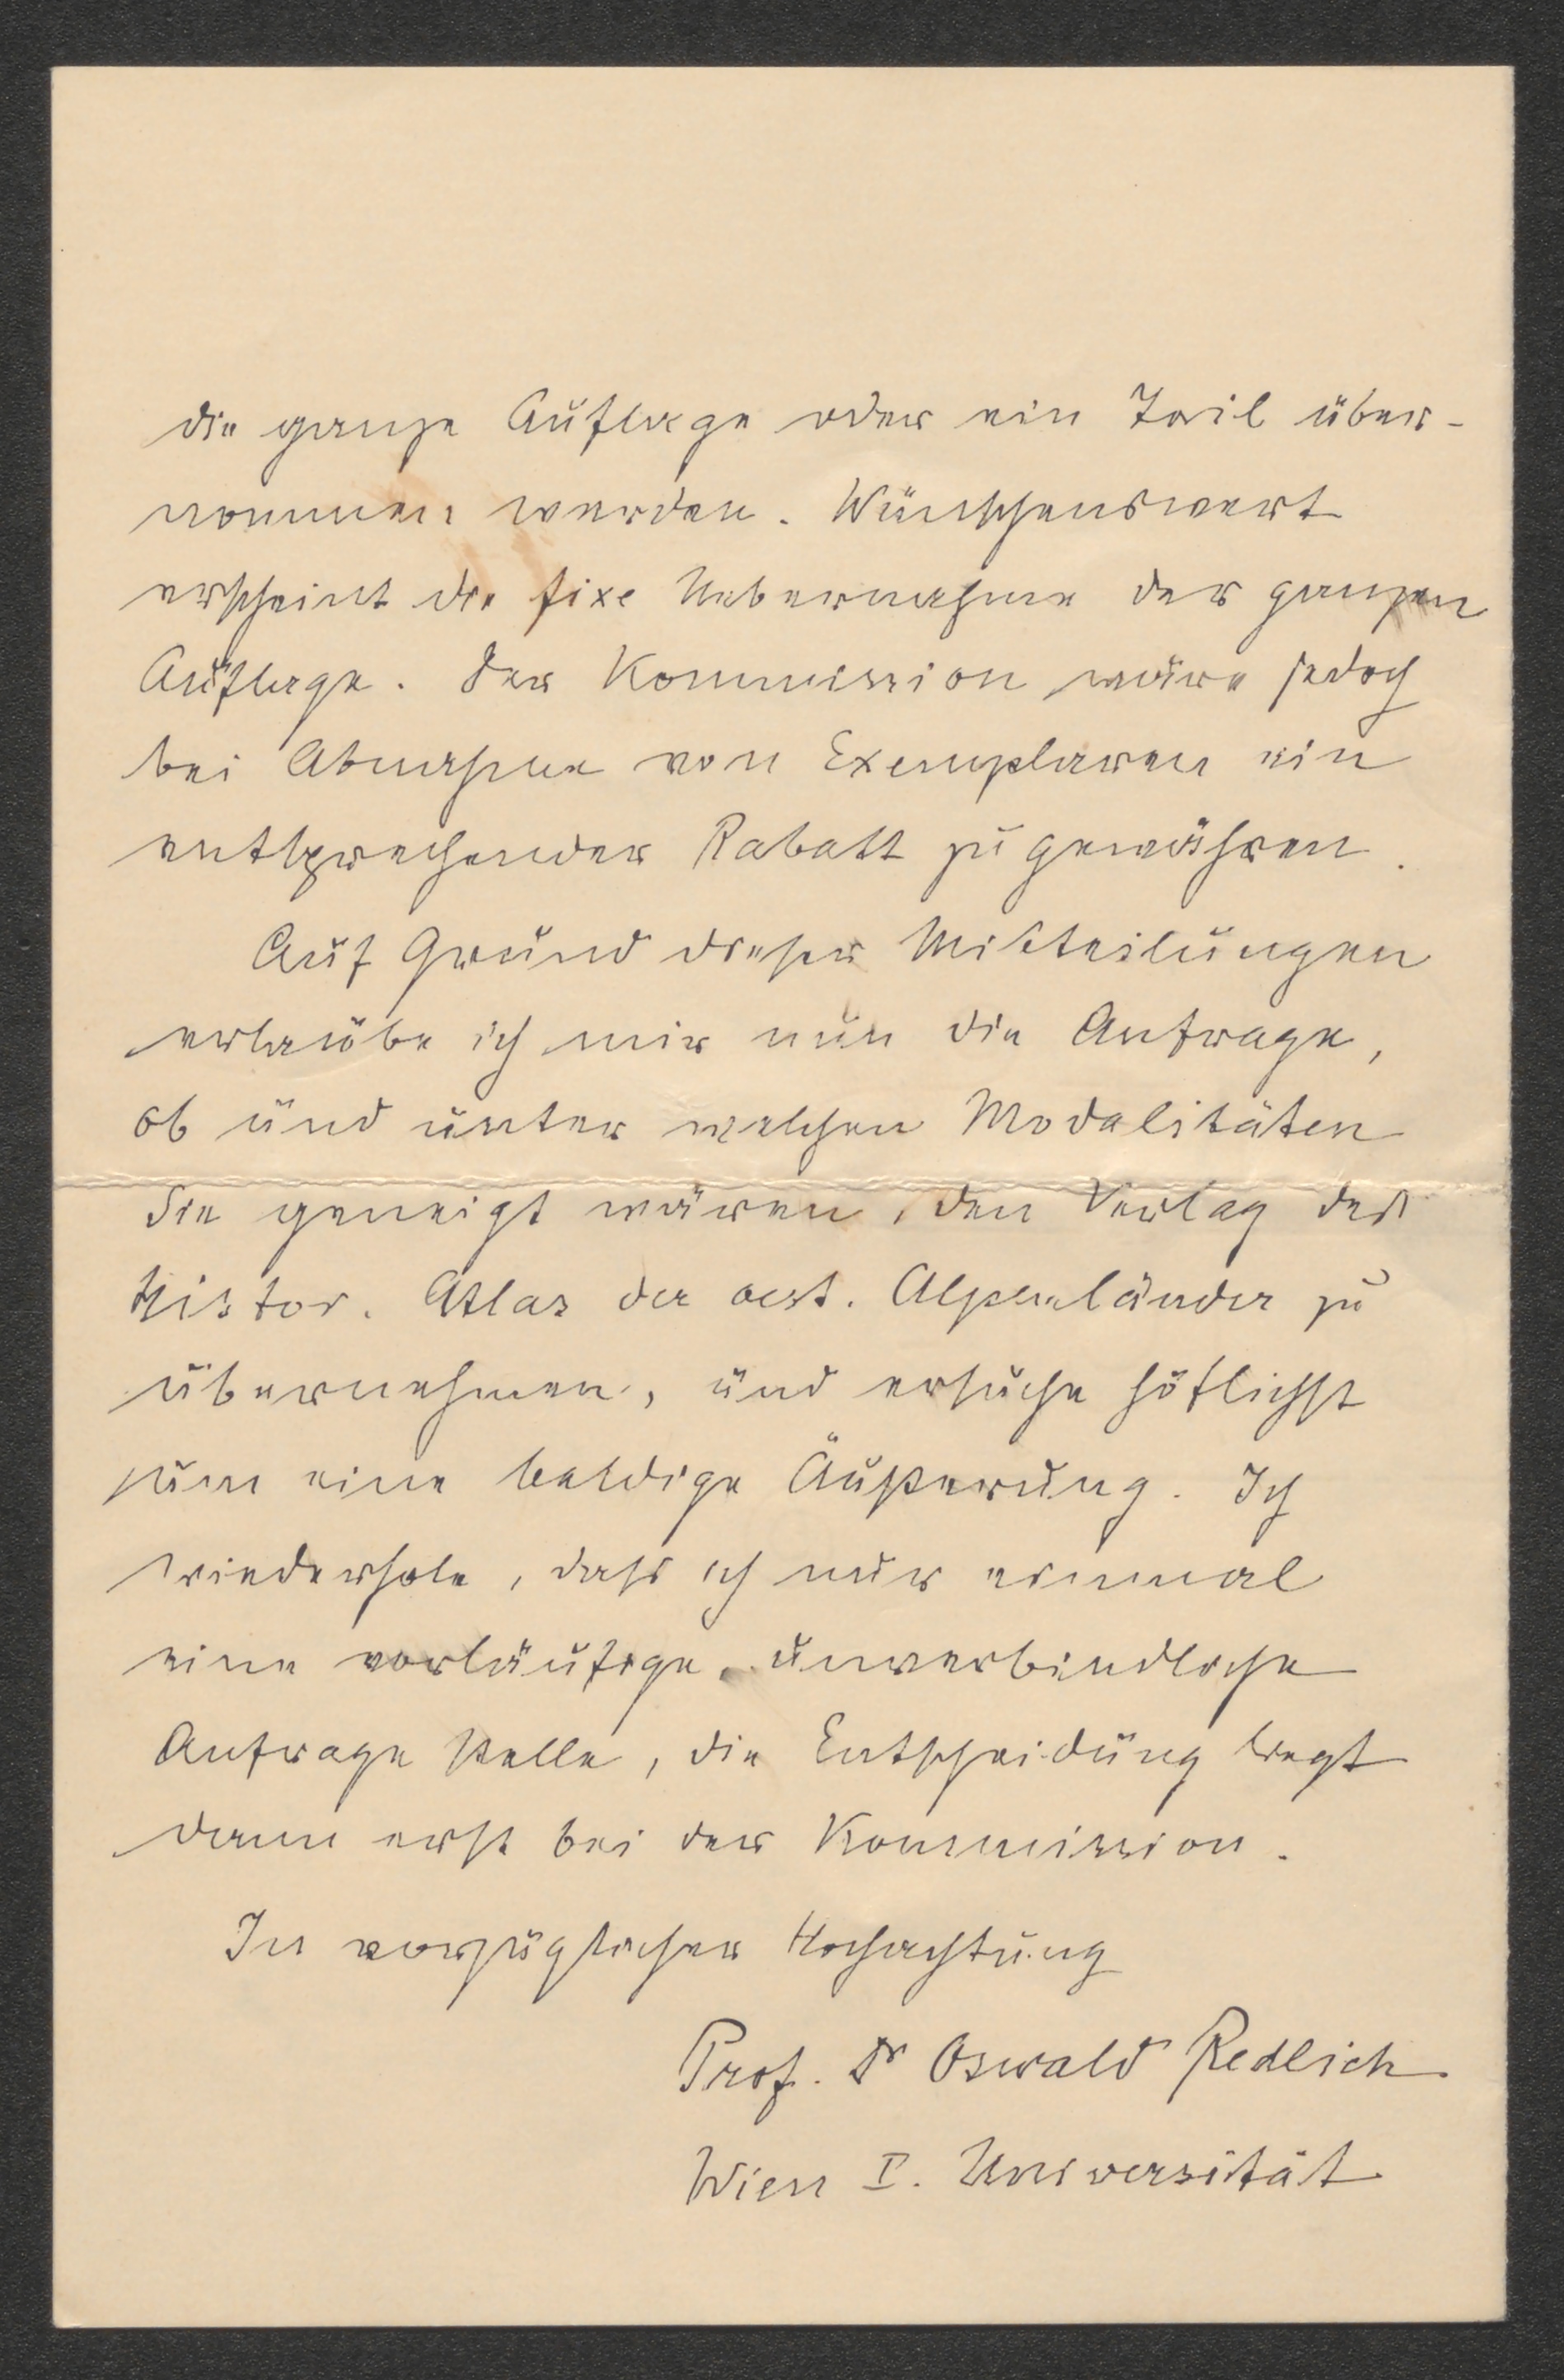 die ganze Auflage oder ein Teil über-
nommen werden. Wünschenswert
erscheint die fixe Uebernahme der ganzen
Auflage. Der Kommission wäre jedoch
bei Abnahme von Exemplaren ein
entsprechender Rabatt zu gewähren.
Auf Grund dieser Mitteilungen
erlaube ich mir nun die Anfrage,
ob und unter welchen Modalitäten
Sie geneigt wären, den Verlag des
Histor. Atlas der oest. Alpenländer zu
übernehmen, und ersuche höflichst
um eine baldige Äußerung. Ich
wiederhole, dass ich nur einmal
eine vorläufige, unverbindliche
Anfrage stelle, die Entscheidung liegt
dann erst bei der Kommission.
In vorzüglicher Hochachtung
Prof. Dr Oswald Redlich
Wien I. Universität